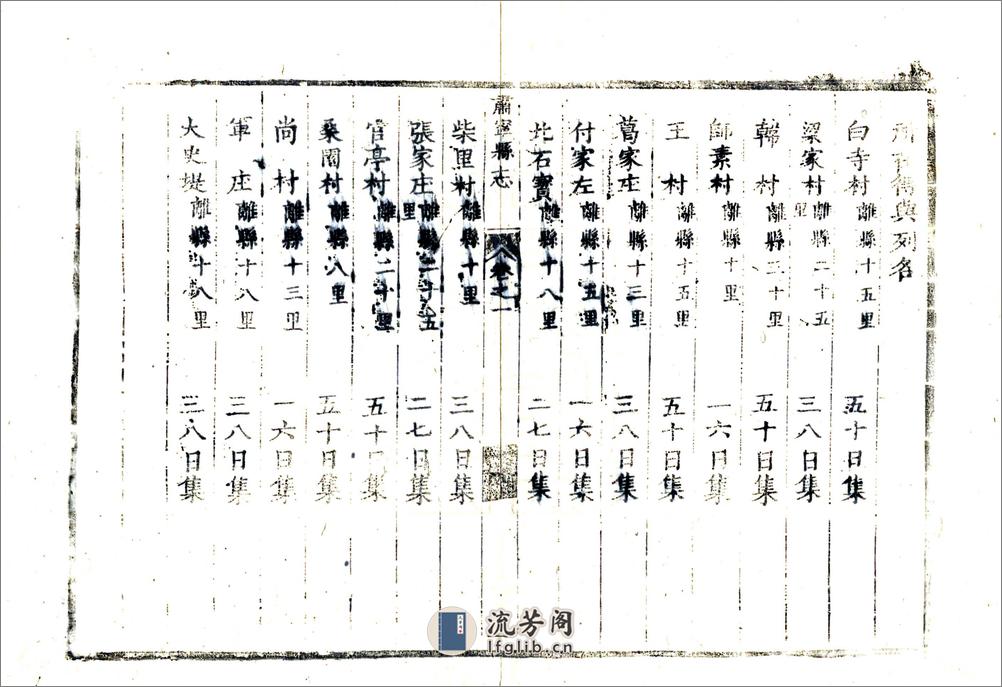 列名
白寺村離縣十五里 五十日集
梁家村離縣二十五里 三八日集
韓村離縣二十里 五十日集
師素村離縣十里 一六日集
王村離縣十五里 五十日集
葛家庄離縣十三里 三八日集
付家左離縣十五里 一六日集
北石寶離縣十八里 二七日集
肅寧縣志 卷之一
柴里村離縣十里 三八日集
張家庄離縣二十五里 二七日集
官亭村離縣二十里 五十日集
桑園村離縣八里 五十日集
尚村離縣十三里 一六日集
軍庄離縣十八里 三八日集
大史堤離縣十八里 三八日集
流芳阁
lfglib.cn